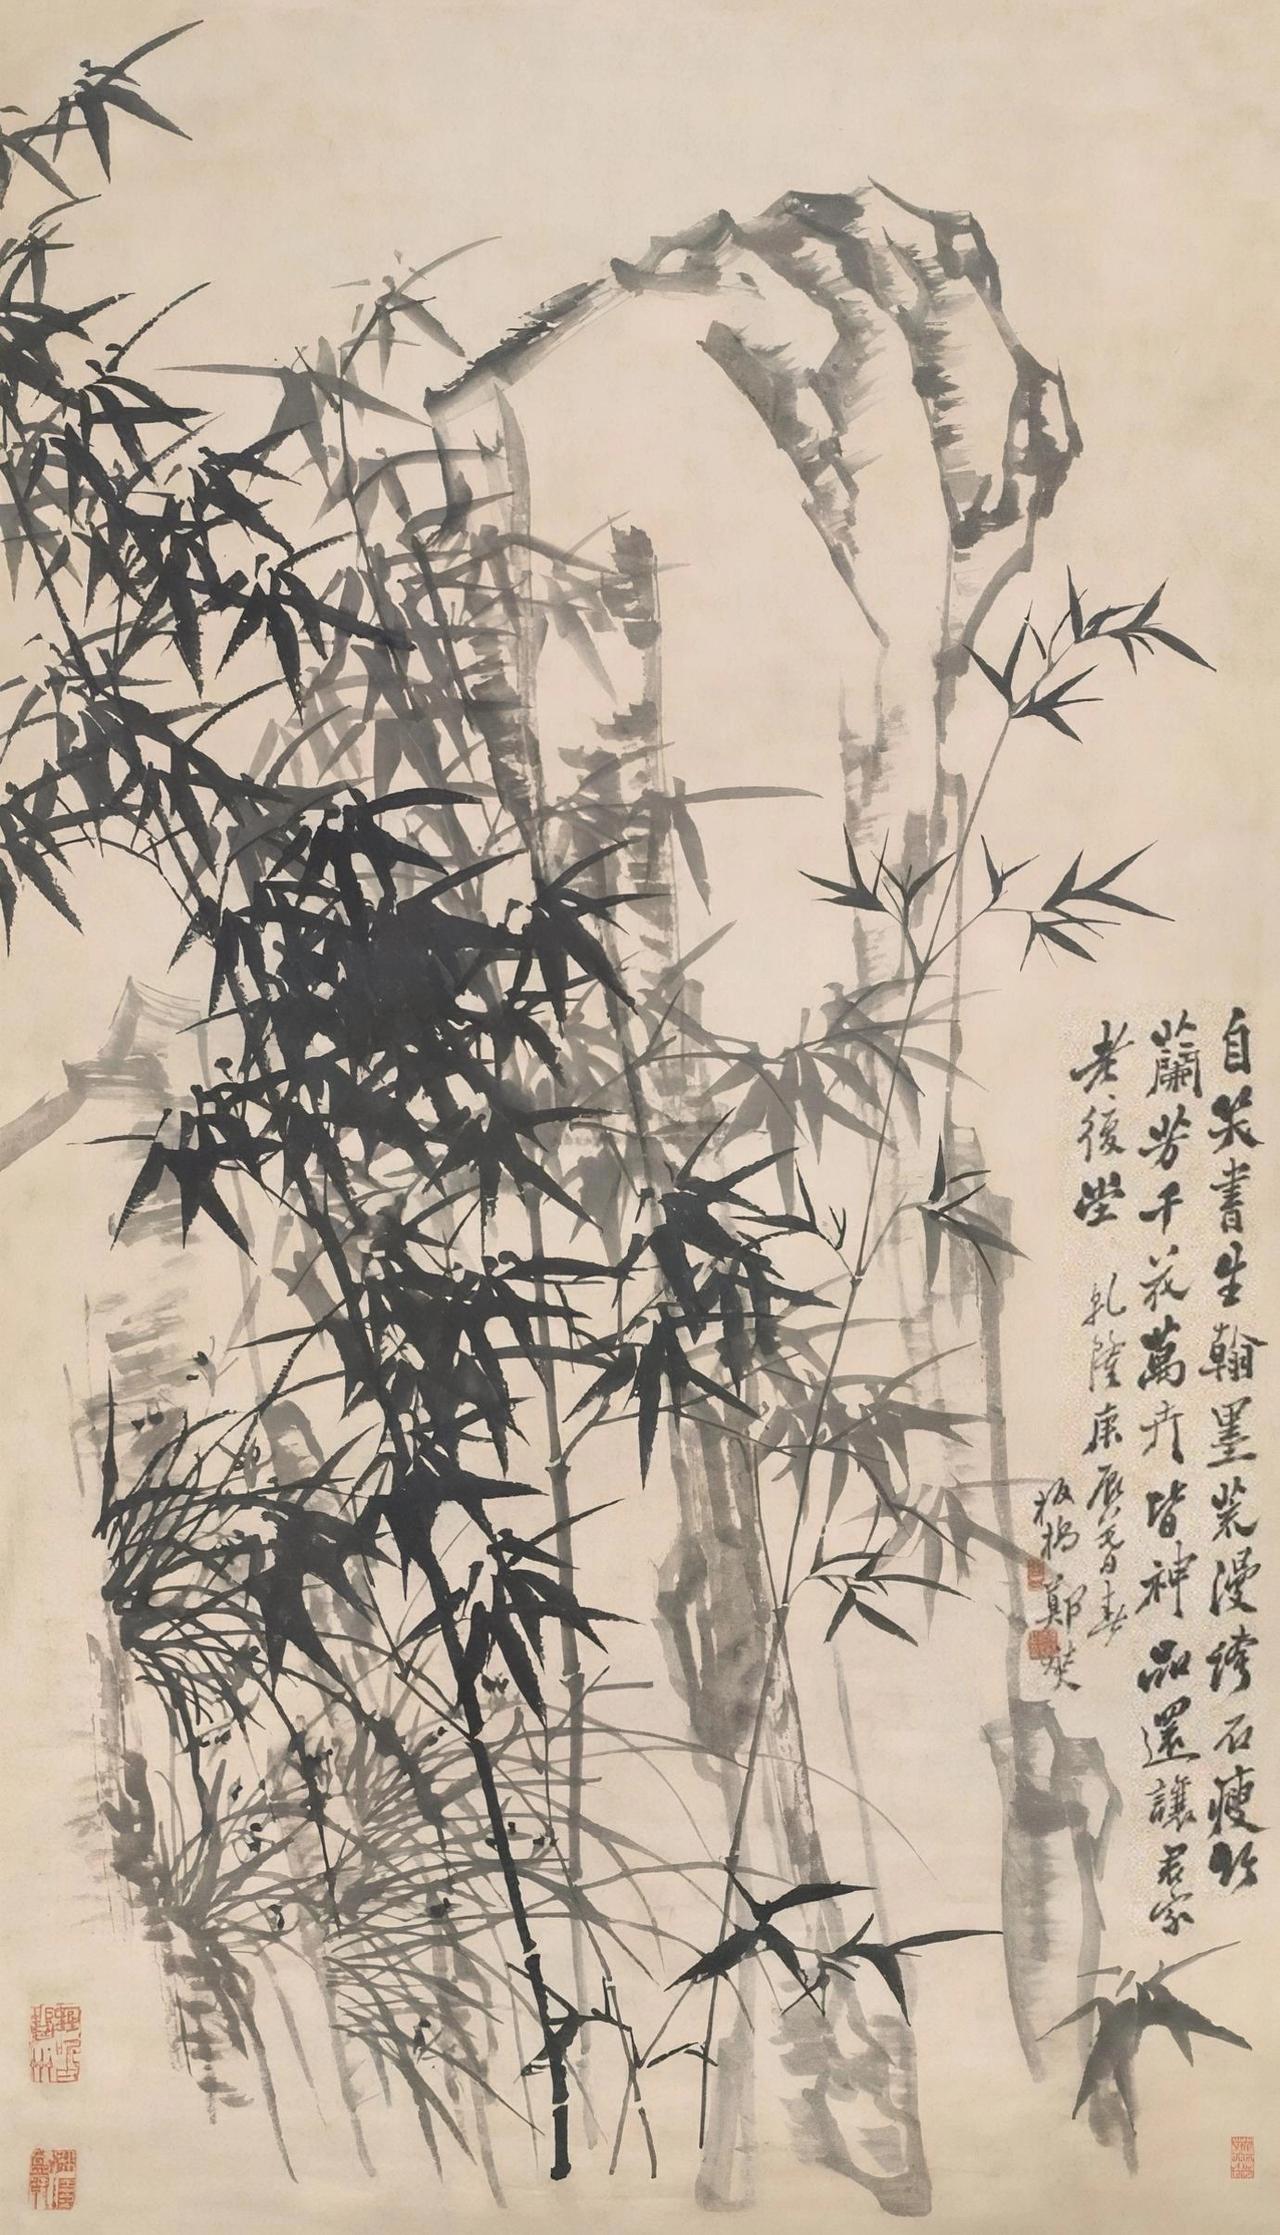 自笑書生翰墨荒漫誇石瘦竹
蘭芳千花萬卉皆神品還讓君家
老後坣 乾隆庚辰
板橋鄭燮